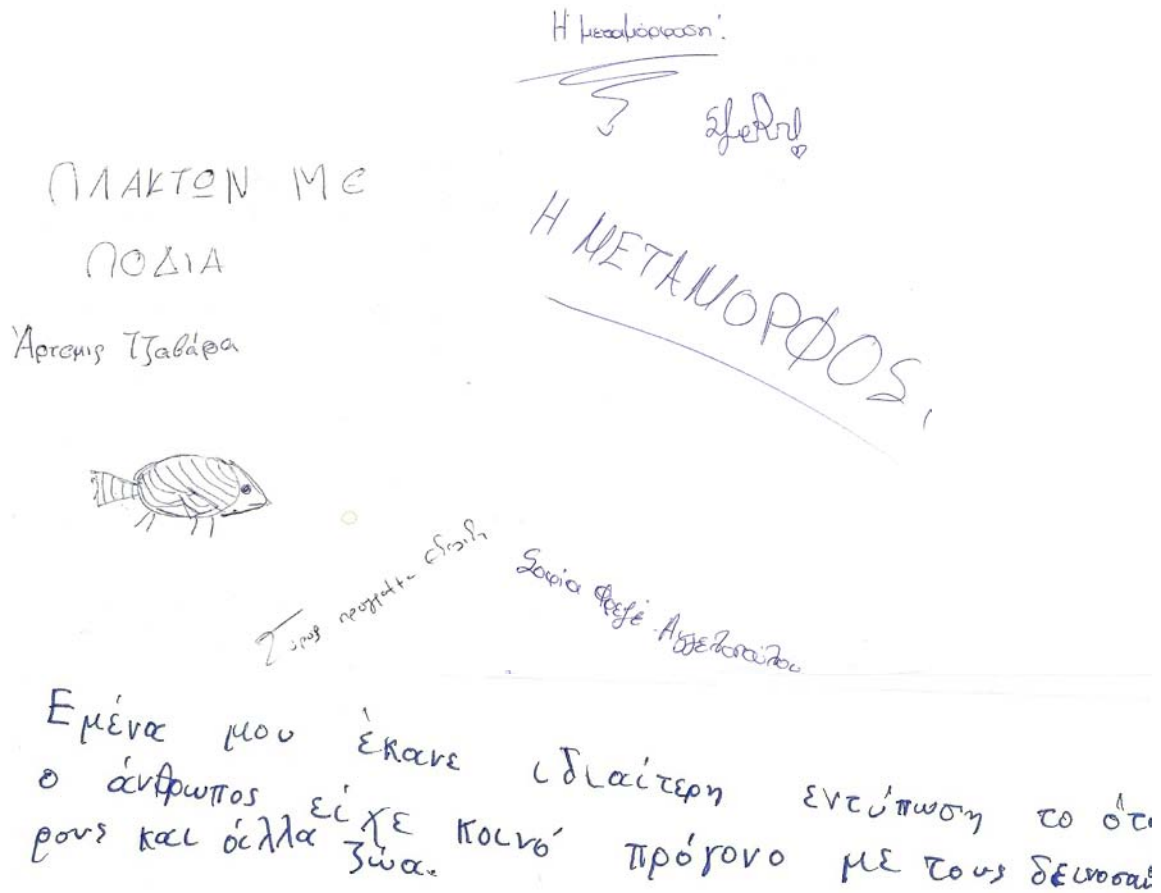 Η μεταμόρφωση!
ΠΛΑΚΤΩΝ ΜΕ
ΠΟΔΙΑ
Άρτεμις Τζαβάρα
Η ΜΕΤΑΜΟΡΦΟS,
Σοφία Φρεζέ Αγγελοπούλου
Εμένα μου έκανε ιδιαίτερη εντύπωση το ότι
ο άνθρωπος είχε κοινό πρόγονο με τους δεινοσαύ
ρους και άλλα ζώα.